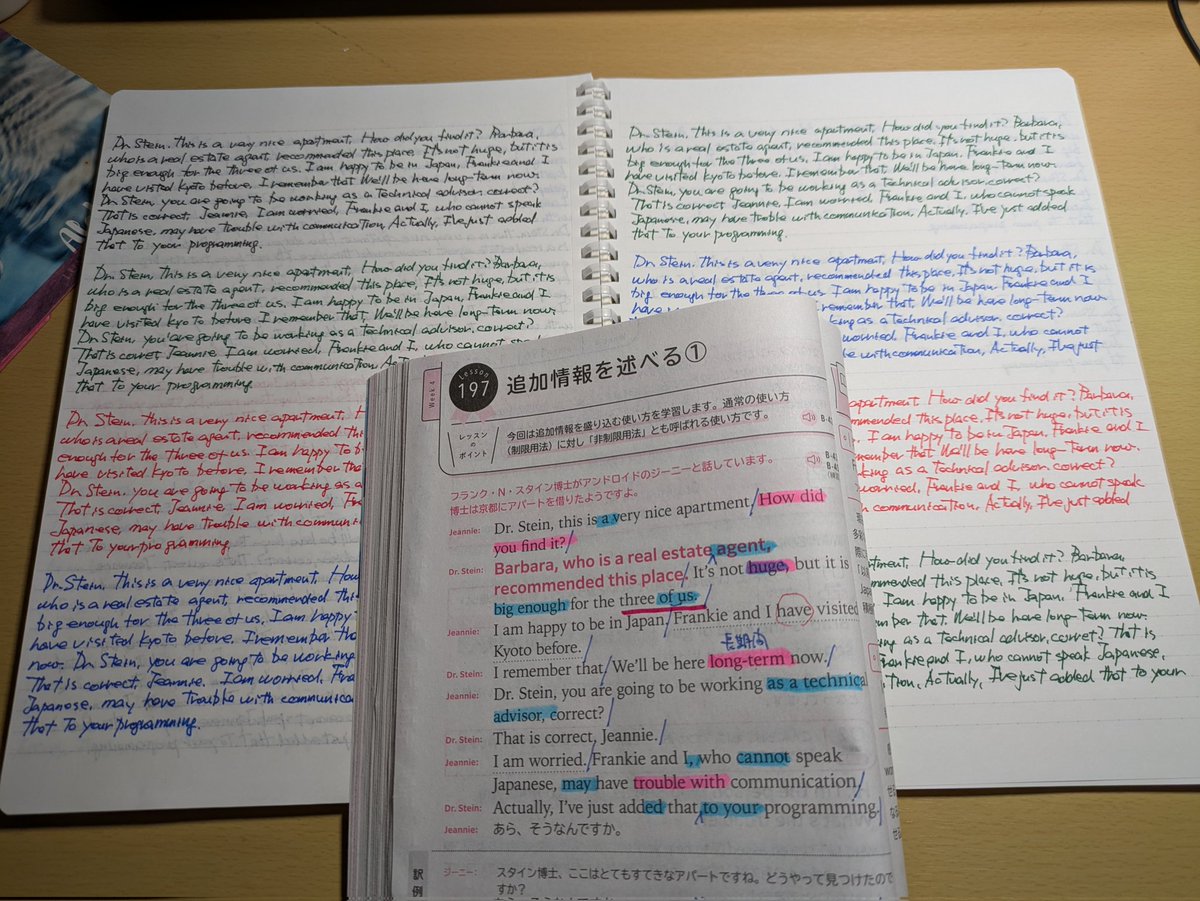 Dr. Stein. This is a very nice apartment, How did you find it? Barbara,
who is a real estate agent, recommended this place, It's not huge, but it is
big enough for the Three of us. I am happy to be in Japan, Frankie and I
have visited Kyoto before, I remember that, We'll be have long-Term now.
Dr. Stein, you are going to be working as a Technical advisor. correct?
That is correct, Jeannie, I am worried, Frankie and I, who cannot speak
Japanese, may have Trouble with communication, Actually, I've just added
that to your programming.
Dr. Stein. This is a very nice apartment, How did you find it? Barbara,
who is a real estate agent, recommended this place, It's not huge, but it is
big enough for the Three of us, I am happy to be in Japan, Frankie and I
have visited Kyoto before, I remember that, We'll be have long-Term now.
Dr. Stein, you are going to be working as a Technical advisor. correct?
That is corret, Jeannie, I am worried, Frankie and I, who cannot
Japanese, may have Trouble with communication,
that to your programming.
Dr. Stein, This is a very nice apartment,
who is a real estate agent, recommended
enough for the Three of us, I am happy to
have visited Kyoto before, I remember
Dr. Stein, you are going to be working as a
That is correct, Jeannie, I am worried,
Japanese, may have Trouble with
that To your programming.
Dr. Stein, This is a very nice apartment,
who is a real estate agent, recommended
big enough for the Three of us, I am happy
have visited Kyoto before, I remember
now. Dr. Stein, you are going to be working
That is correct, Jeannie, I am worried,
Japanese, may have Trouble with
that To your programming.
Dr. Stein, This is a very nice apartment, How did you find it? Barbara,
who is a real estate agent, recommended this place, It's not huge, but it is
big enough for the Three of us, I am happy to be in Japan, Frankie and I
have visited Kyoto before, I remember that, We'll be have long-Term now.
Dr. Stein, you are going to be working as a Technical advisor. correct?
That is correct, Jeannie, I am worried, Frankie and I, who cannot speak
Japanese, may have Trouble with communication, Actually, I've just added
that to your programming.
Dr. Stein, This is a very nice apartment, How did you find it? Barbara,
who is a real estate agent, recommended this place, It's not huge, but it is
big enough for the Three of us, I am happy to be in Japan Frankie and I
have remember that, We'll be have long-Term now
as a Technical advisor, correct?
Frankie and I, who cannot
with communication, Actually, I've just
apartment How did you find it? Barbara
recommended this place, It's not huge, but it is
I am happy to be in Japan, Frankie and I
that, We'll be have long-Term now.
as a Technical advisor, correct?
worried, Frankie and I, who cannot speak
Actually, I've just added
How did you find it? Barbara,
this place, It's not huge, but it is
I am happy to be in Japan, Frankie and I
that, We'll be have long-Term now.
as a Technical advisor, corret? That is
Frankie and I, who cannot speak Japanese,
Actually, I've just added that to your
Week 4
Lesson
197
追加情報を述べる①
レッスン
の
ポイント
今回は追加情報を盛り込む使い方を学習します。通常の使い方
(制限用法)に対し「非制限用法」とも呼ばれる使い方です。
フランク・N・スタイン博士がアンドロイドのジーニーと話しています。
博士は京都にアパートを借りたようですよ。
Jeannie: Dr. Stein, this is a very nice apartment. How did
you find it?
Dr. Stein: Barbara, who is a real estate agent,
recommended this place. It's not huge, but it is
big enough for the three of us.
Jeannie: I am happy to be in Japan. Frankie and I have visited
Kyoto before.
長期的
Dr. Stein: I remember that. We'll be here long-term now.
Jeannie: Dr. Stein, you are going to be working as a technical
advisor, correct?
Dr. Stein: That is correct, Jeannie.
Jeannie: I am worried. Frankie and I, who cannot speak
Japanese, may have trouble with communication.
Dr. Stein: Actually, I've just added that to your programming.
Jeannie: あら、そうなんですか。
訳例
ジーニー: スタイン博士、ここはとてもすてきなアパートですね。どうやって見つけたので
すか?